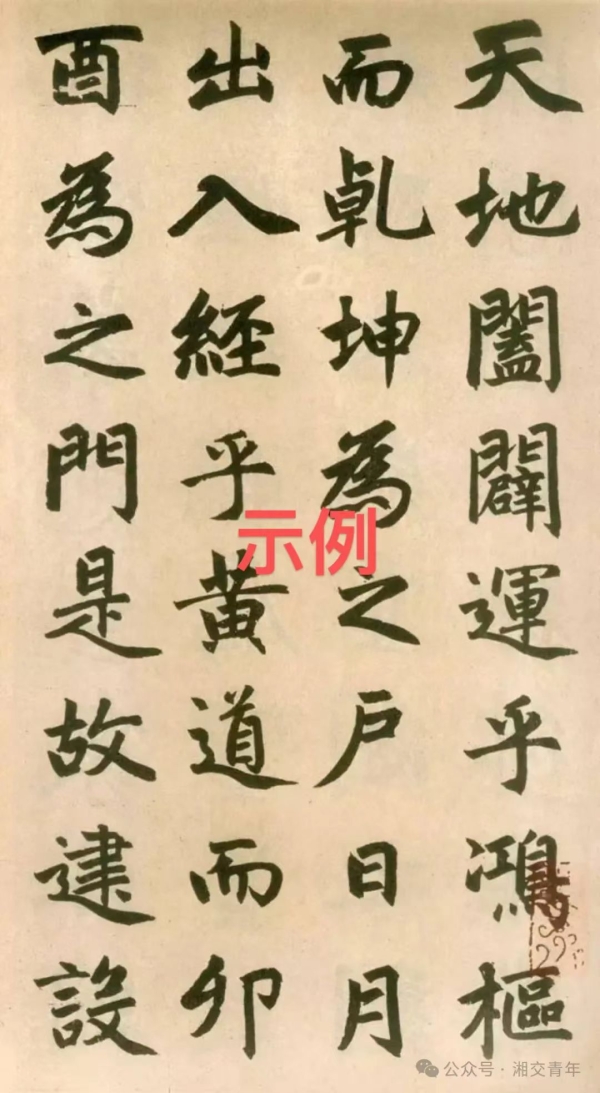 天地闔闢運乎鴻樞
而乹坤為之戶日月
出入經乎黃道而卯
酉為之門是故建設
示例
公众号·湘交青年